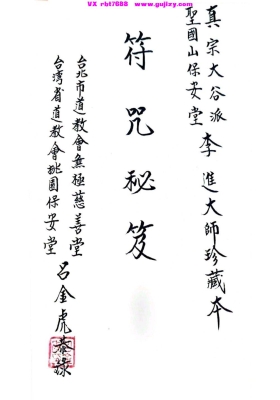 VX rbt7888 www.gujizy.com
真宗大谷派
聖國山保安堂
李進大師珍藏本
符咒秘笈
台北市道教會無極慈善堂
台灣省道教會桃園保安堂
呂金虎恭錄